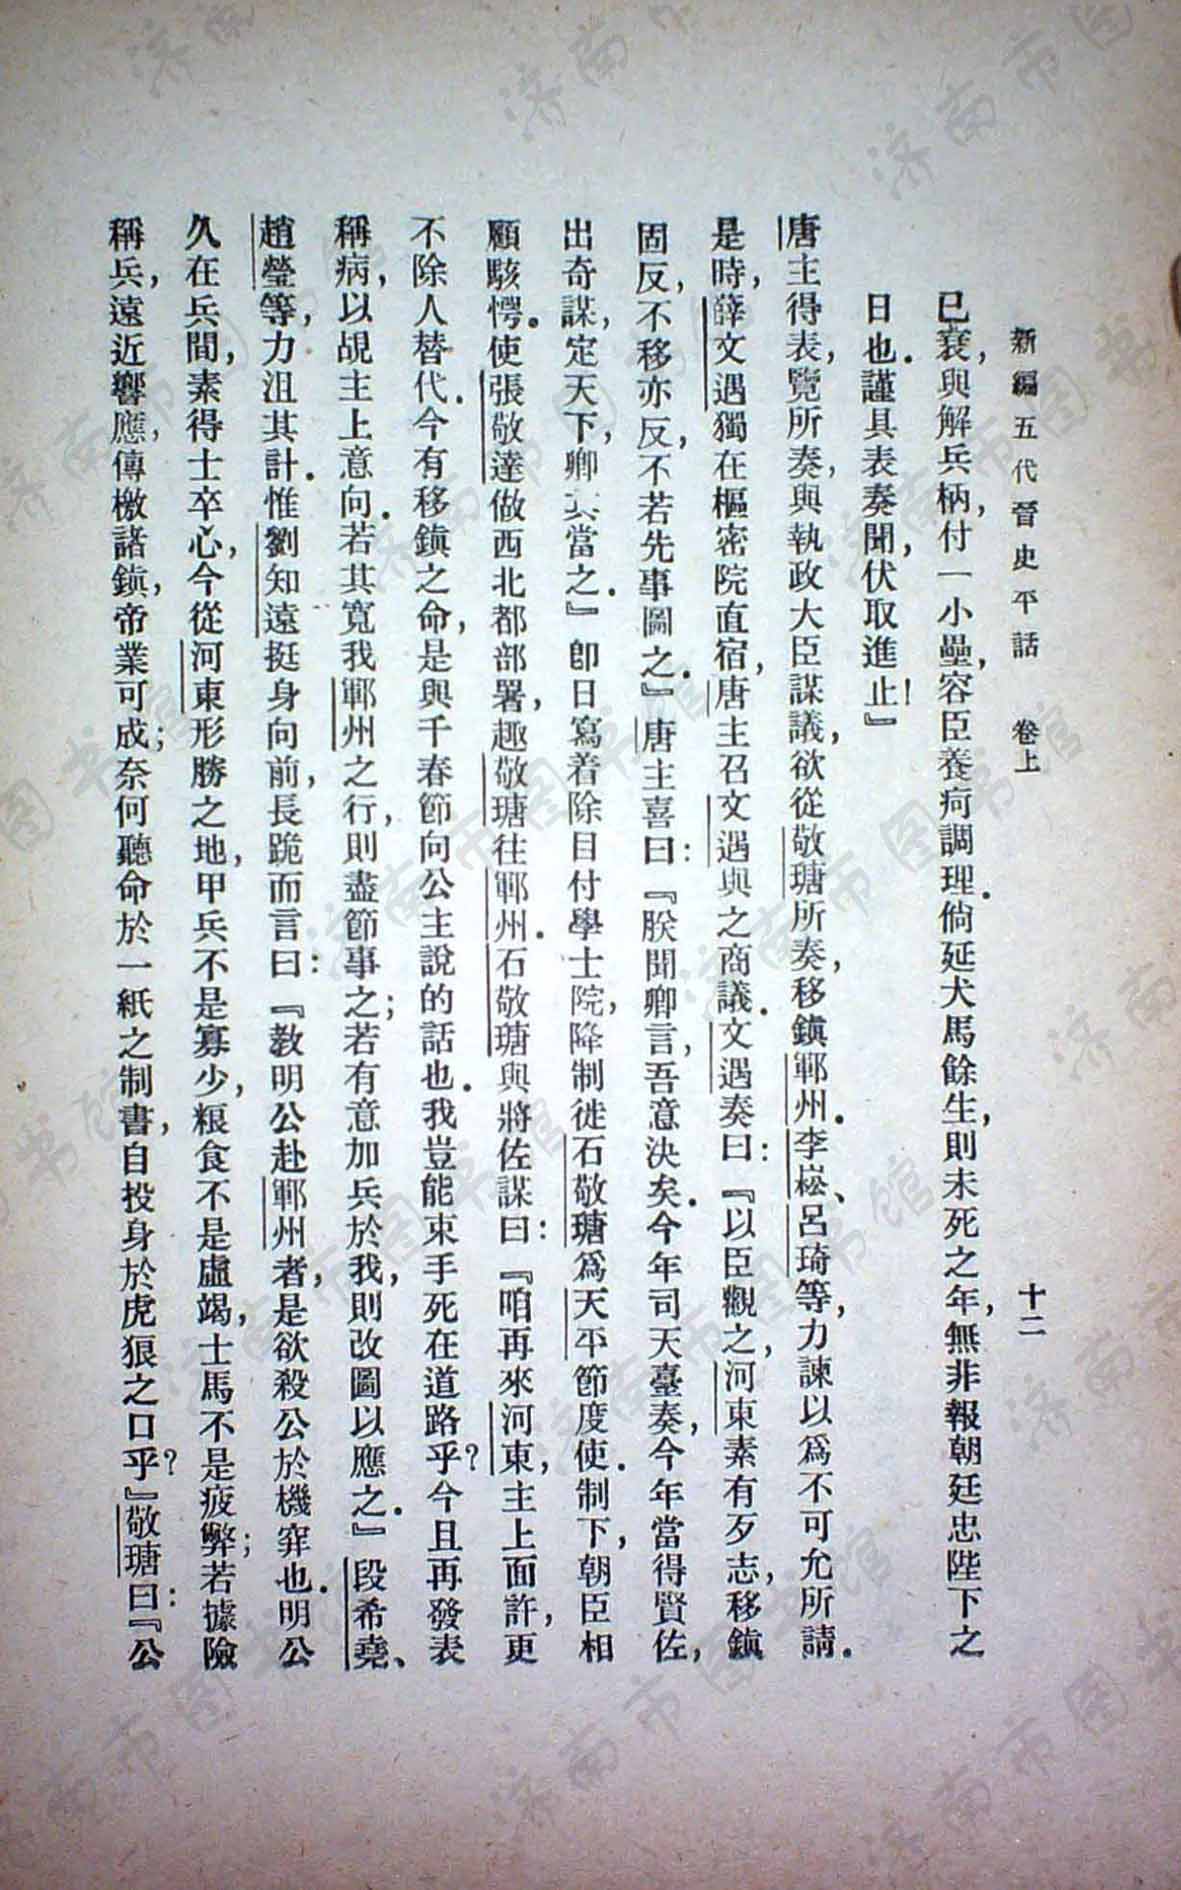 新編五代晉史平話　卷上　十二
已衰，與解兵柄，付一小壘，容臣養疴調理．倘延犬馬餘生，則未死之年，無非報朝廷忠陛下之
日也．謹具表奏聞，伏取進止！』
唐主得表，覽所奏，與執政大臣謀議，欲從敬瑭所奏，移鎮鄆州．李崧、呂琦等，力諫以爲不可允所請．
是時，薛文遇獨在樞密院直宿，唐主召文遇與之商議．文遇奏曰：『以臣觀之，河東素有歹志，移鎮
固反，不移亦反，不若先事圖之．』唐主喜曰：『朕聞卿言，吾意決矣．今年司天臺奏，今年當得賢佐，
出奇謀，定天下，卿其當之．』卽日寫着除目付學士院，降制徙石敬瑭爲天平節度使．制下，朝臣相
顧駭愕．使張敬達做西北都部署，趣敬瑭往鄆州．石敬瑭與將佐謀曰：『咱再來河東，主上面許，更
不除人替代．今有移鎮之命，是與千春節向公主說的話也．我豈能束手死在道路乎？今且再發表
稱病，以覘主上意向．若其寬我鄆州之行，則盡節事之；若有意加兵於我，則改圖以應之．』段希堯、
趙瑩等，力沮其計．惟劉知遠挺身向前，長跪而言曰：『敎明公赴鄆州者，是欲殺公於機穽也．明公
久在兵間，素得士卒心，今從河東形勝之地，甲兵不是寡少，粮食不是虛竭，士馬不是疲弊；若據險
稱兵，遠近響應，傳檄諸鎮，帝業可成；奈何聽命於一紙之制書，自投身於虎狼之口乎？』敬瑭曰：『公
济南市图书馆